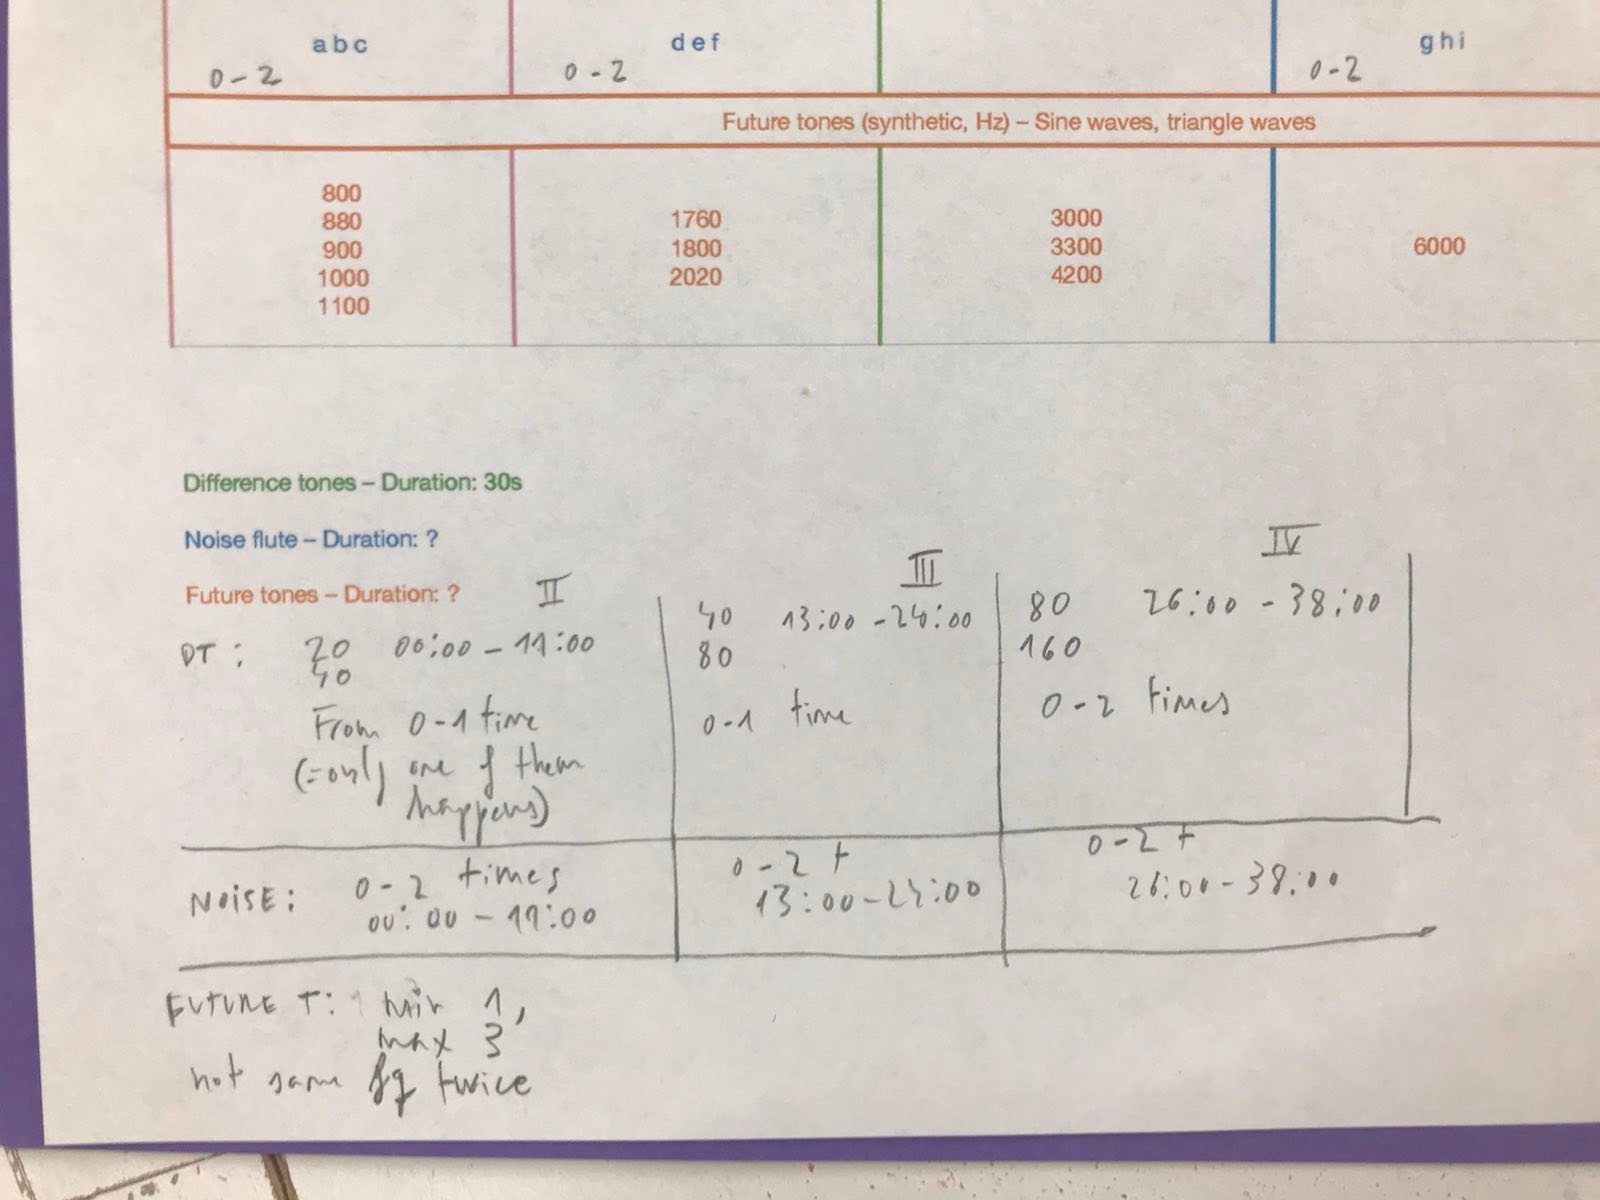 abc def ghi
0-2 0-2 0-2
Future tones (synthetic, Hz) – Sine waves, triangle waves
800
880 1760 3000
900 1800 3300 6000
1000 2020 4200
1100
Difference tones – Duration: 30s
Noise flute – Duration: ?
Future tones – Duration: ?
II
DT: 20 00:00 - 11:00
40
From 0-1 time
(=only one of them
happens)
III
40 13:00 - 24:00
80
0-1 time
IV
80 26:00 - 38:00
160
0-2 times
NOISE: 0-2 times
00:00 - 11:00
0-2 t
13:00 - 24:00
0-2 t
26:00 - 38:00
FUTURE T: min 1,
max 3
not same fq twice